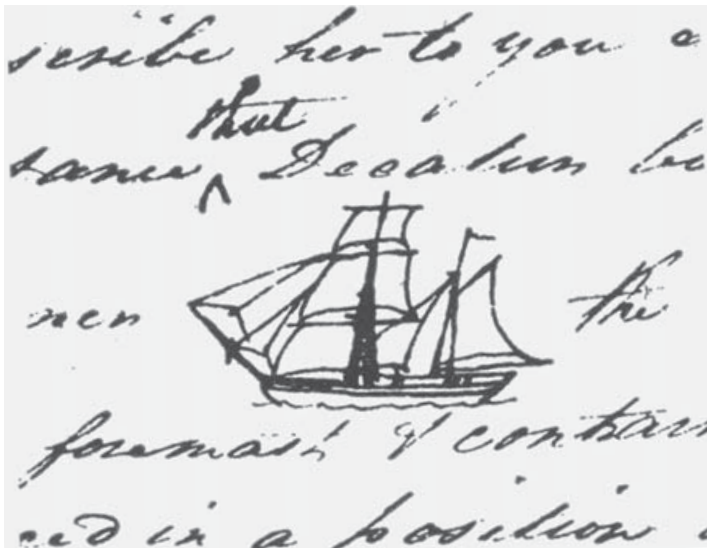 scribe her to you
that
same ^ Decatur
the
foremast & contrar
ced in a position